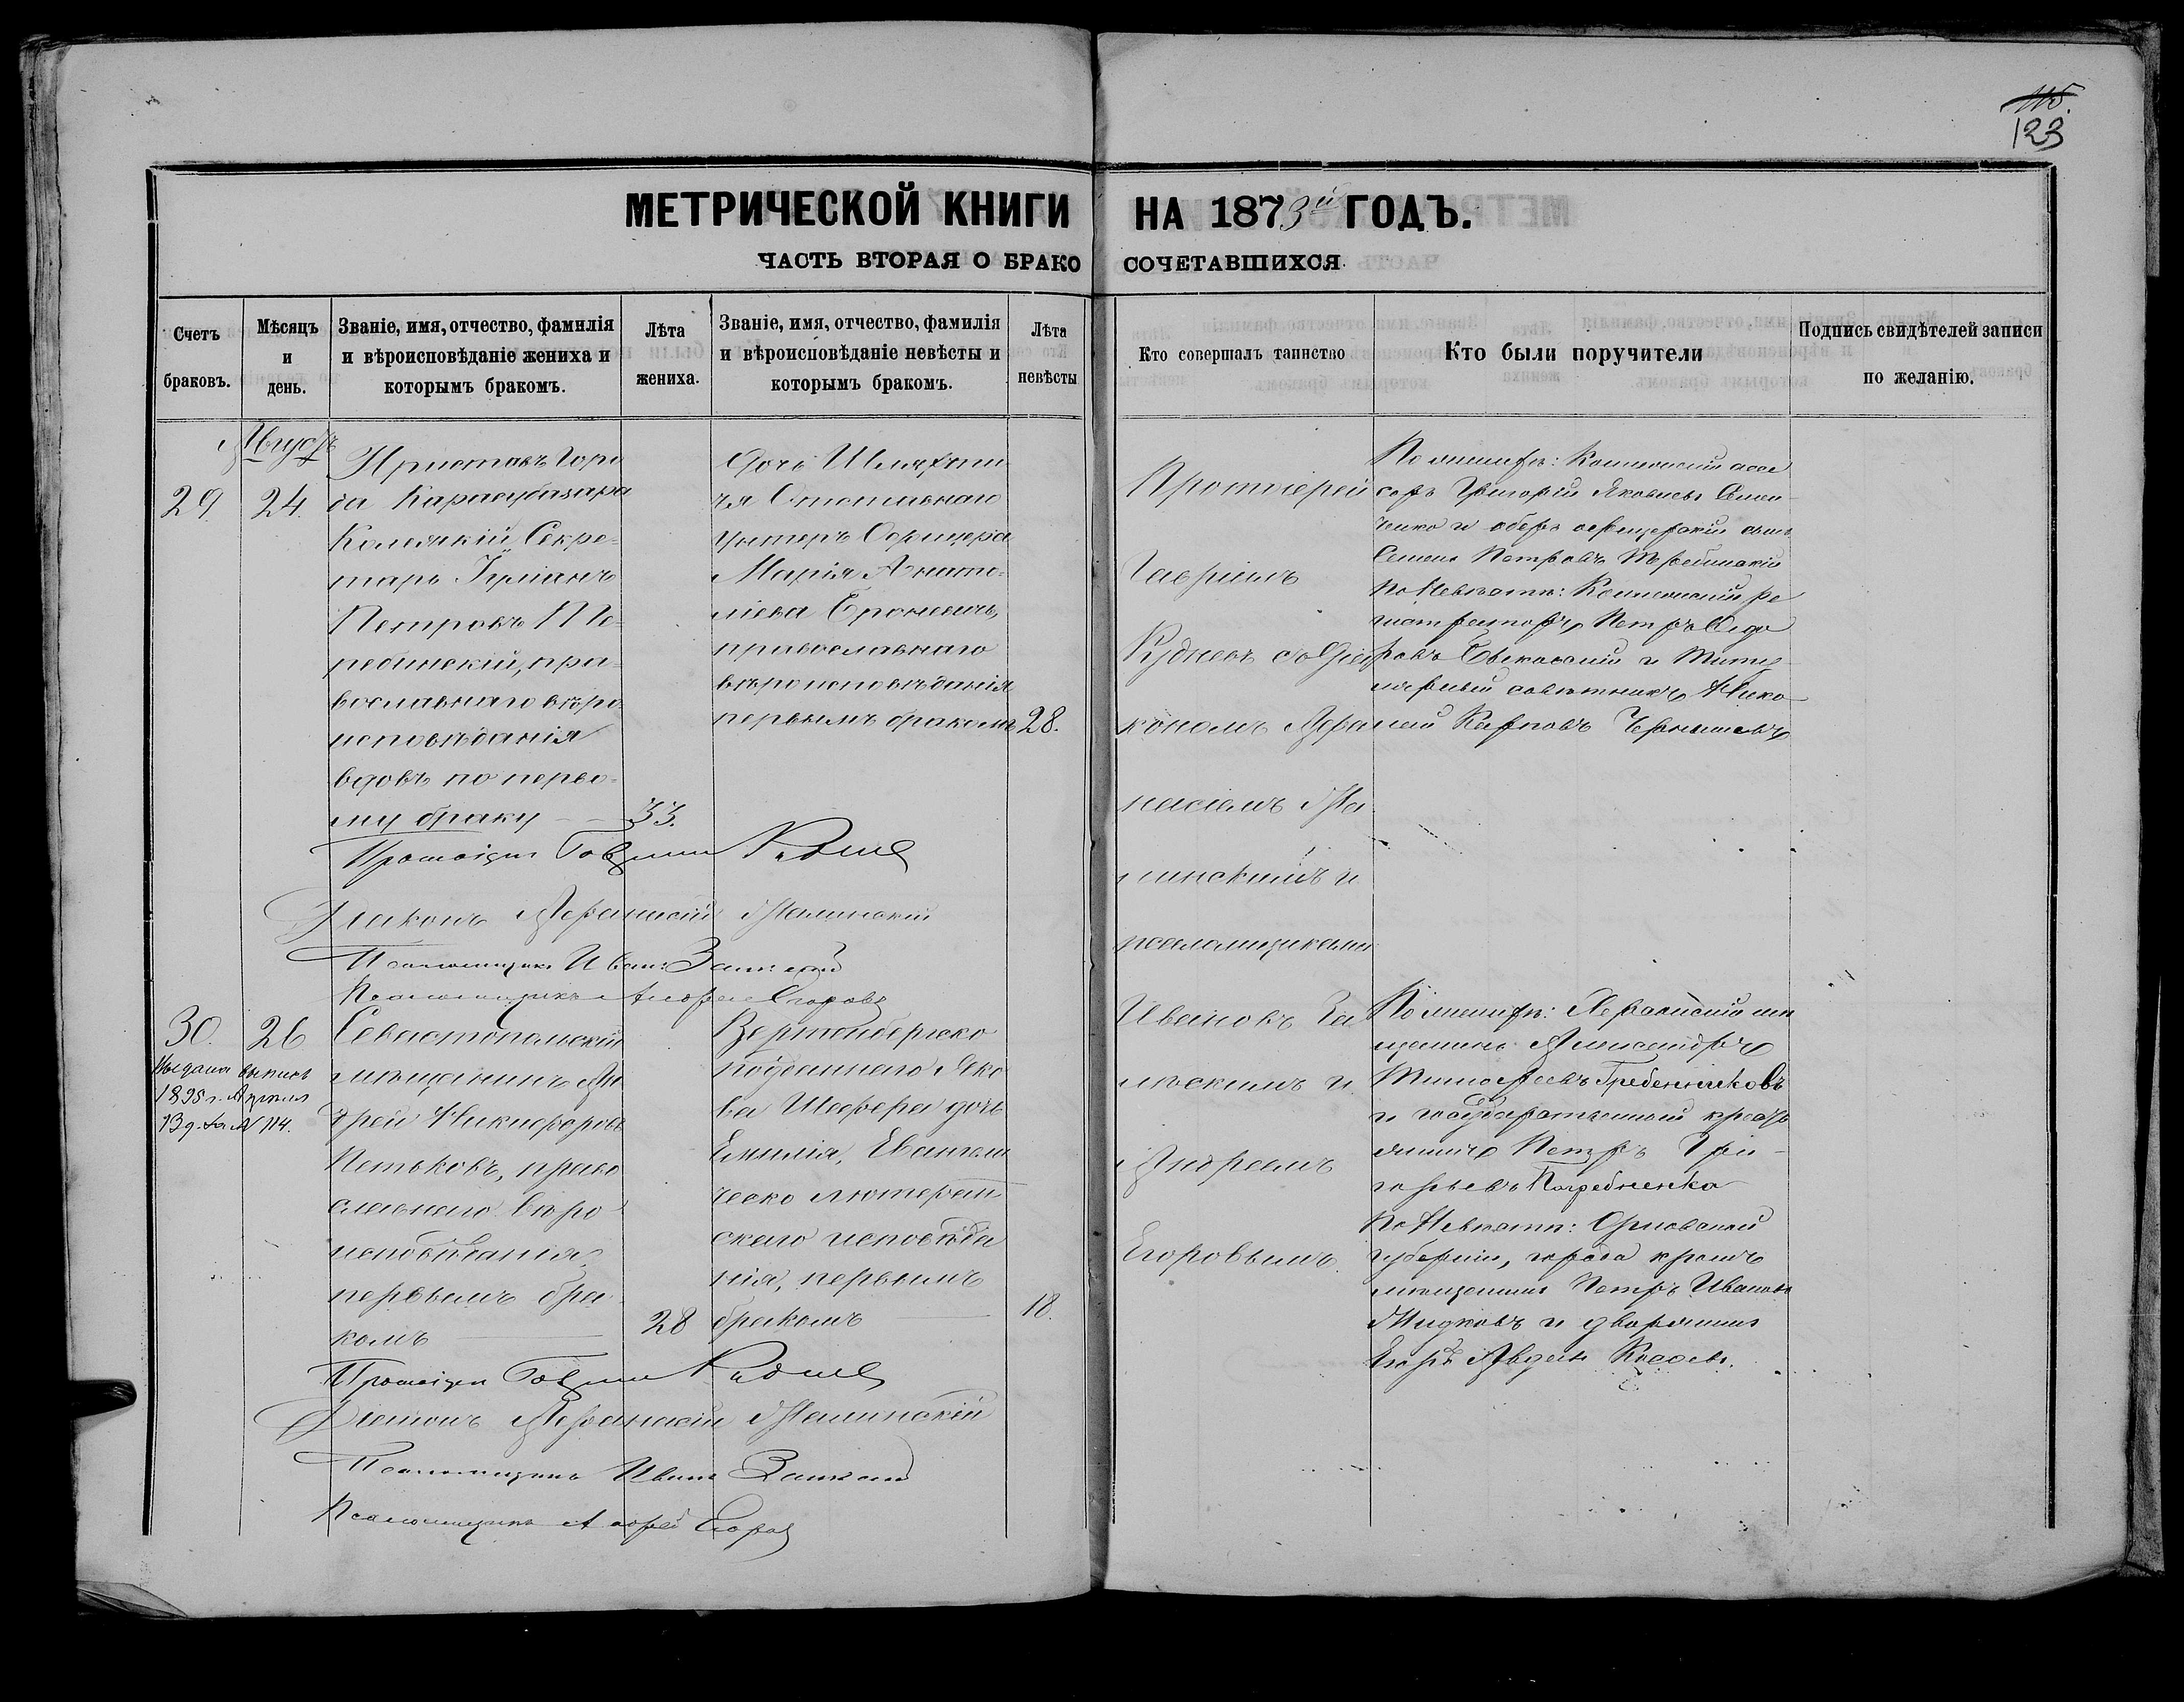 115.
123
МЕТРИЧЕСКОЙ КНИГИ НА 1873й ГОДЪ.
ЧАСТЬ ВТОРАЯ О БРАКОСОЧЕТАВШИХСЯ.
Счетъ браковъ.
Мѣсяцъ и день.
Званіе, имя, отчество, фамилія и вѣроисповѣданіе жениха и которымъ бракомъ.
Лѣта жениха.
Званіе, имя, отчество, фамилія и вѣроисповѣданіе невѣсты и которымъ бракомъ.
Лѣта невѣсты
Кто совершалъ таинство
Кто были поручители
Подпись свидѣтелей записи по желанію.
Августъ
29.
24.
Приставъ Горо
да Карасубазара
Колежкій Секре-
тарь Іуліанъ
Петровъ Те-
ребинскій, пра-
вославнаго вѣро
исповѣданія
вдовъ по перво-
му браку
33.
Дочь Шляхти-
ча Отставнаго
Унтеръ Офицера
Марія Анато-
ліева Броневичъ,
православнаго
вѣроисповѣданія
первымъ бракомъ
28.
Протоіерей
Гавріилъ
Рудневъ съ Діа
кономъ Афа
насіемъ
и
псаломщиками
Ивановъ За
и
Андреемъ
Егоровымъ
По женихѣ: Коллежскій асс
соръ Григорій Яковлевъ Семен-
ченко и оберъ офицерскій сынъ
Семенъ Петровъ Теребинскій
По Невѣстѣ: Коллежскій ре
гистраторъ Петръ Сидо
ровъ и Титу
лярный совѣтникъ Нико
лай Карповъ Чернышевъ
Протоіерей Гавріилъ Руднев
Діаконъ Афанасій
Псаломщикъ Иванъ
Псаломщикъ Андрей Егоровъ
30.
26
Выдана выпись
1895 г. Апрѣля
13 д. за № 114.
Севастопольскій
мѣщанинъ Ан
дрей Никифоровъ
Петьковъ, право
славнаго вѣро
исповѣданія
первымъ бра
комъ
28
Вертенбергско
подданнаго Яко
ва Шефера дочь
Емилія, Евангели
ческо лютеран
скаго исповѣда
нія, первымъ
бракомъ
18.
По женихѣ:
щанинъ Александръ
Тимофеевъ Гребенниковъ
и государственный кресть
янинъ Петръ Гри-
горьевъ Погребненко
По Невѣстѣ: Орловской
губерніи, города Кромъ
мѣщанинъ Петръ Ивановъ
Жидковъ и дворянинъ
Егоръ Авдеев
Протоіерей Гавріилъ Руднев
Діаконъ Афанасій
Псаломщикъ Иванъ
Псаломщикъ Андрей Егоровъ